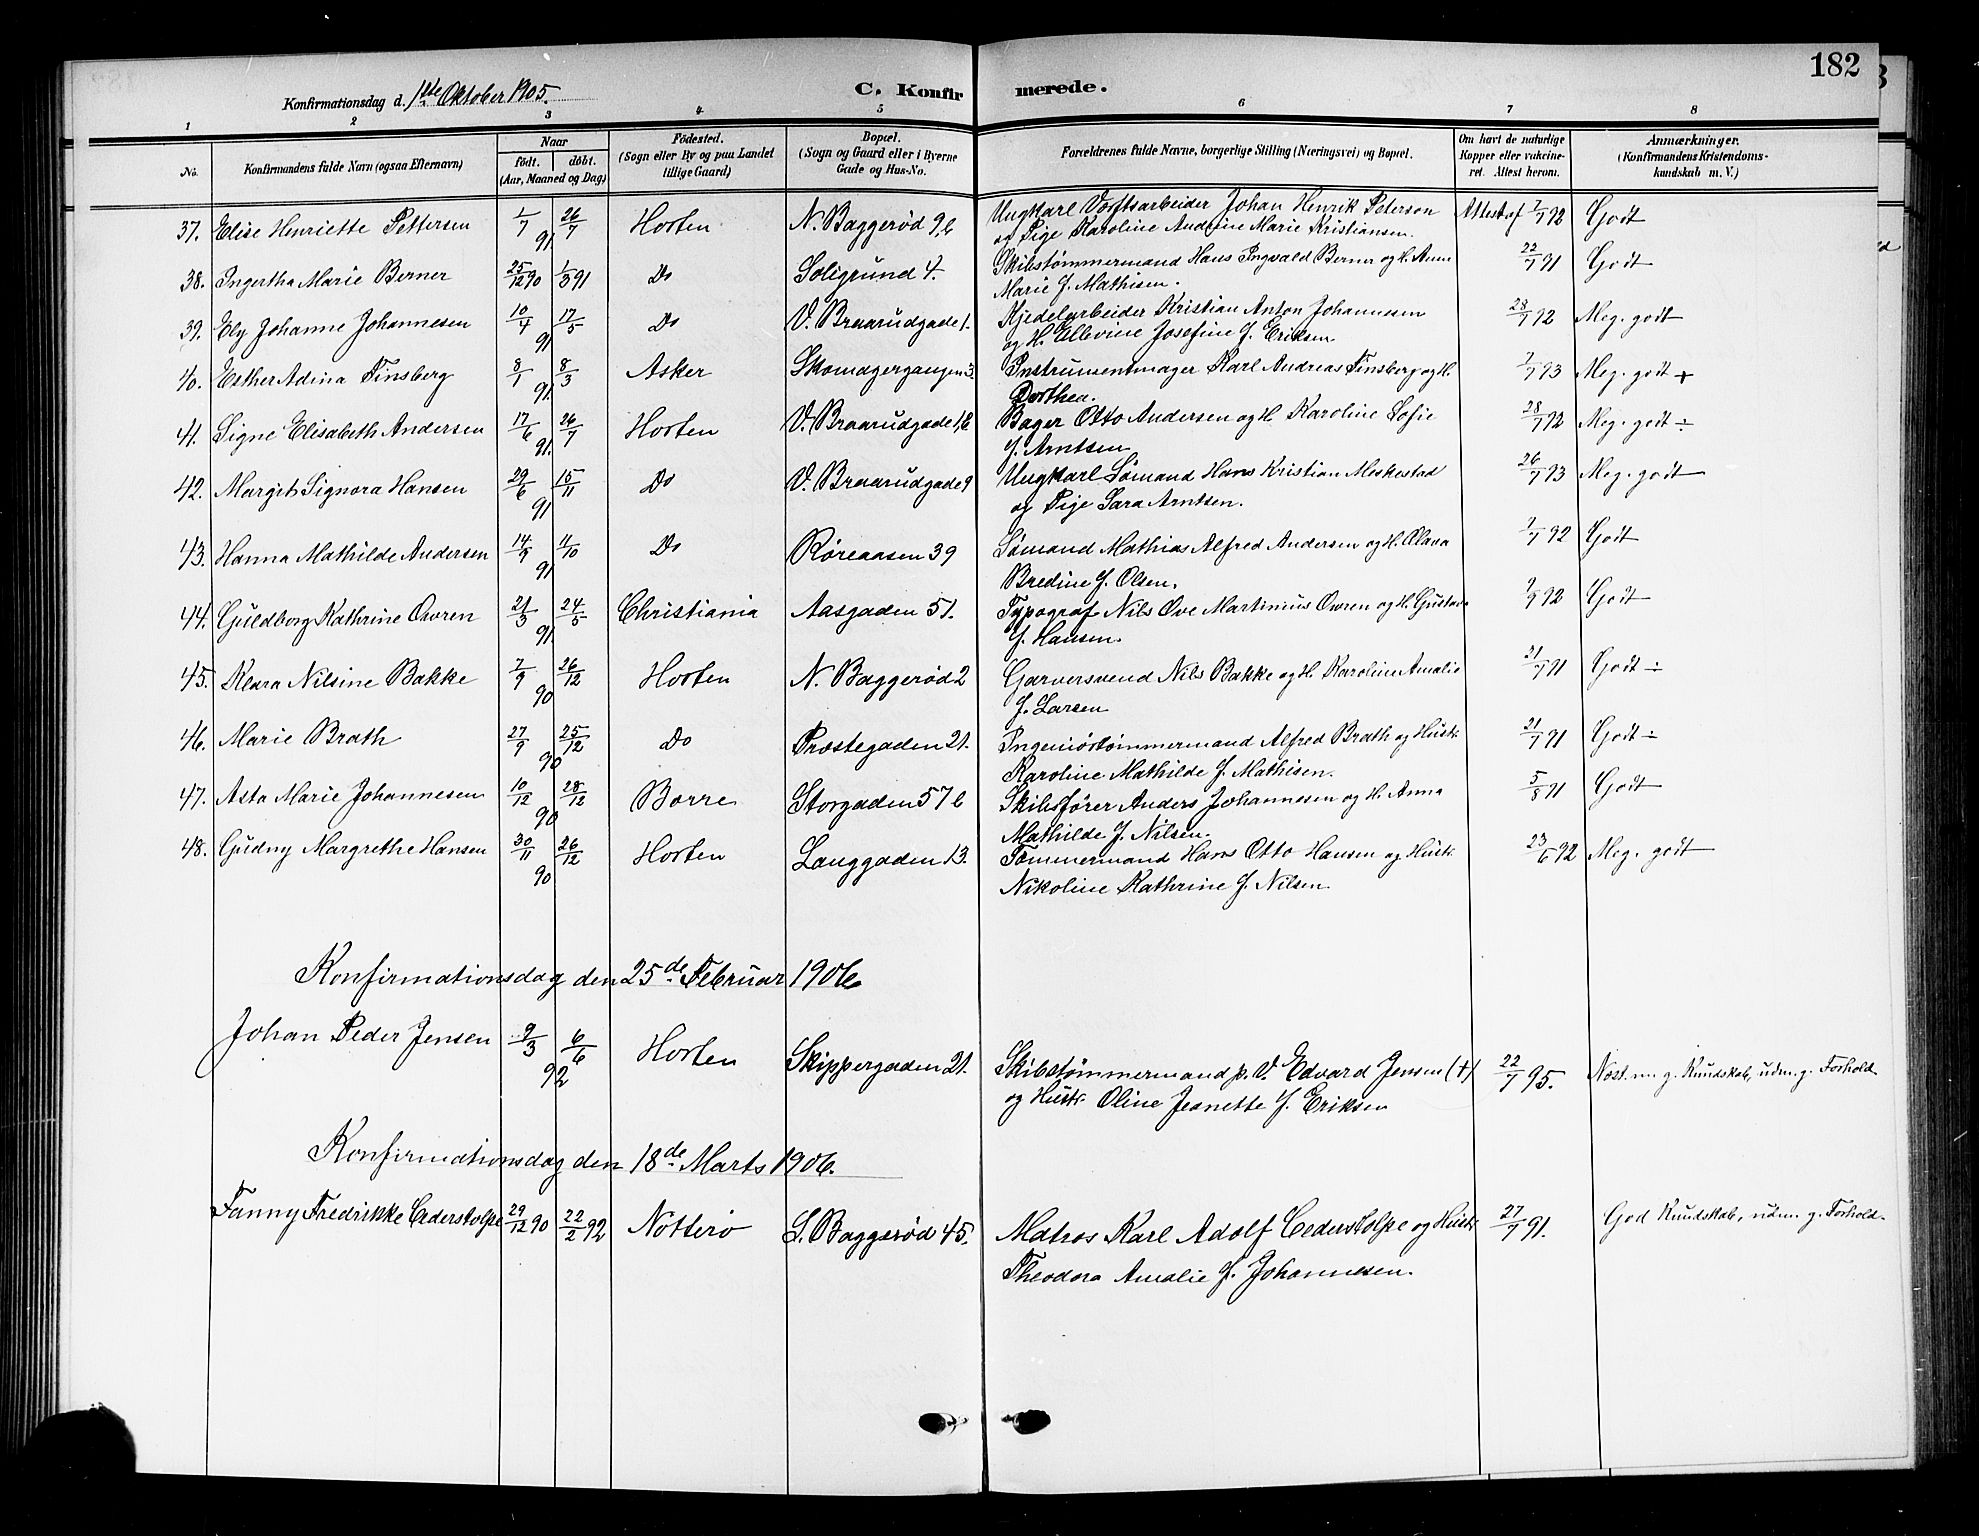 182
Konfirmationsdag d. 1ste Oktober 1905. C. Konfirmerede.
1 2 3 4 5 6 7 8
No. Konfirmandens fulde Navn (ogsaa Efternavn) Naar födt. döbt. (Aar, Maaned og Dag) Födested. (Sogn eller By og paa Landet tillige Gaard) Bopæl. (Sogn og Gaard eller i Byerne Gade og Hus-No. Forældrenes fulde Navne, borgerlige Stilling (Næringsvei) og Bopæl. Om havt de naturlige Kopper eller vakcineret. Attest herom. Anmærkninger. (Konfirmandens Kristendomskundskab m. V.)
37. Elise Henriette Pettersen 1/7 91 26/7 Horten N. Baggerød 9b Ungkarl Værftsarbeider Johan Henrik Peterson Attest af 7/7 92 Godt
og Pige Karoline Andrine Marie Kristiansen.
38. Ingertha Marie Berner 25/12 90 1/3 91 Do Soligrund 4. Skibstømmermand Hans Ingvald Berner og H. Anne 22/7 91 Godt
Marie f. Mathisen.
39. Ely Johanne Johannesen 10/4 91 17/5 Do V. Braarudgade 1. Kjedelarbeider Kristian Anton Johannesen 28/7 92 Meg. godt
og H. Ellevine Josefine f. Eriksen
40. Esther Adina Finsberg 8/1 91 8/3 Asker Skomagergangen 3. Instrumentmager Karl Andreas Finsberg og H. 7/7 93 Meg. godt +
Dorthea.
41. Signe Elisabeth Andersen 17/6 91. 26/7 Horten V. Braarudgade 1,b Bager Otto Andersen og H. Karoline Sofie 28/7 92 Meg. godt ÷
f. Arntsen
42. Margit Signora Hansen 29/6 91 15/11 Do V. Braarudgade 9 Ungkarl Sømand Hans Kristian Meskestad 26/7 93 Meg. godt
og Pige Sara Arntsen.
43. Hanna Mathilde Andersen 14/9 91 11/10 Do Røreaasen 39 Sømand Mathias Alfred Andersen og H. Olava 7/7 92 Godt
Bredine f. Olsen.
44. Guldborg Kathrine Owren 21/3 91. 24/5 Christiania Aasgaden 51. Typograf Nils Ove Martinius Owren og H. Gustava 7/9 92 Godt
f. Hansen.
45. Klara Nilsine Bakke 7/9 90 26/12 Horten N. Baggerød 2 Garversvend Nils Bakke og H. Karoline Amalie 21/7 91 Godt ÷
f. Larsen
46. Marie Brath 27/9 90 25/12 Do Præstegaden 21. Ingeniørtømmermand Alfred Brath og Hustr. 21/7 91 Godt ÷
Karoline Mathilde f. Mathisen.
47. Asta Marie Johannesen 10/12 90 28/12 Borre Storgaden 57b Skibsfører Anders Johannesen og H. Anna 5/8 91 Godt
Mathilde f. Nilsen.
48. Gudny Margrethe Hansen 30/11 90 26/12 Horten Langgaden 13. Tømmermand Hans Otto Hansen og Hustr. 23/6 92 Meg. godt
Nikoline Kathrine f. Nilsen
Konfirmationsdag den 25de Februar 1906
Johan Peder Jensen 9/3 92 6/6 Horten Skippergaden 21. Skibstømmermand p. V. Edvard Jensen (+) 22/7 95. Næst. m. g. Kundskab, udm. g. Forhold
og Hustr. Oline Jeanette f. Eriksen
Konfirmationsdag den 18de Marts 1906.
Fanny Fredrikke Cederstolpe 29/12 90 22/2 92 Nøtterø S. Baggerød 45. Matros Karl Adolf Cederstolpe og Hustr. 27/7 91. God Kundskab, udm. g. Forhold
Theodora Amalie f. Johannesen.